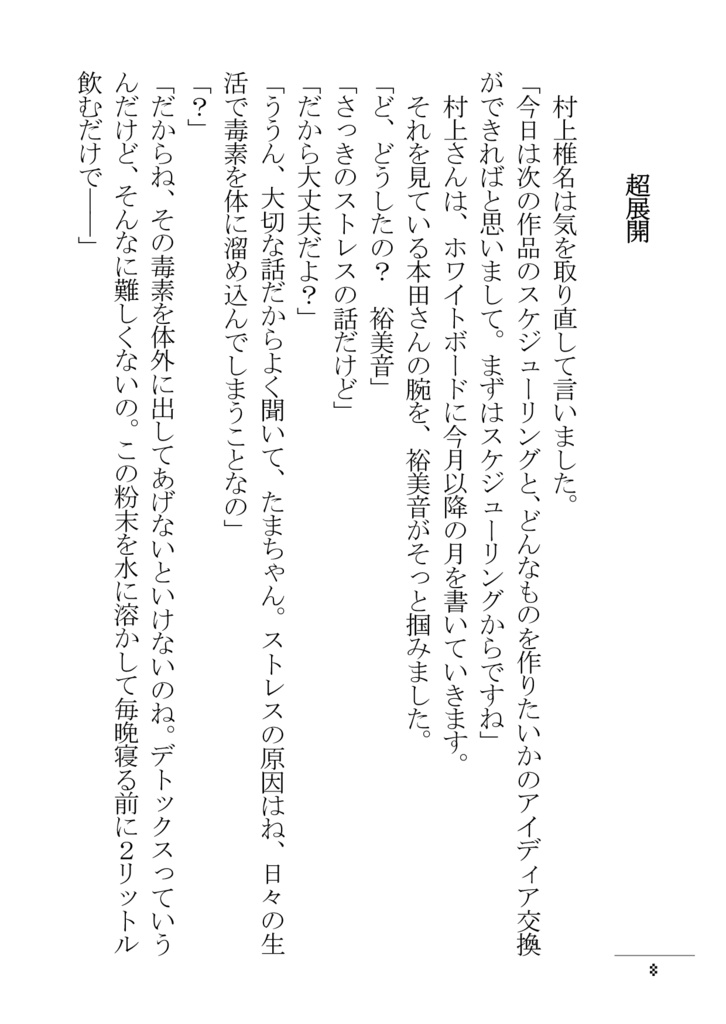 超展開
村上椎名は気を取り直して言いました。
「今日は次の作品のスケジューリングと、どんなものを作りたいかのアイディア交換
ができればと思いまして。まずはスケジューリングからですね」
村上さんは、ホワイトボードに今月以降の月を書いていきます。
それを見ている本田さんの腕を、裕美音がそっと掴みました。
「ど、どうしたの？　裕美音」
「さっきのストレスの話だけど」
「だから大丈夫だよ？」
「ううん、大切な話だからよく聞いて、たまちゃん。ストレスの原因はね、日々の生
活で毒素を体に溜め込んでしまうことなの」
「？」
「だからね、その毒素を体外に出してあげないといけないのね。デトックスっていう
んだけど、そんなに難しくないの。この粉末を水に溶かして毎晩寝る前に２リットル
飲むだけで――」